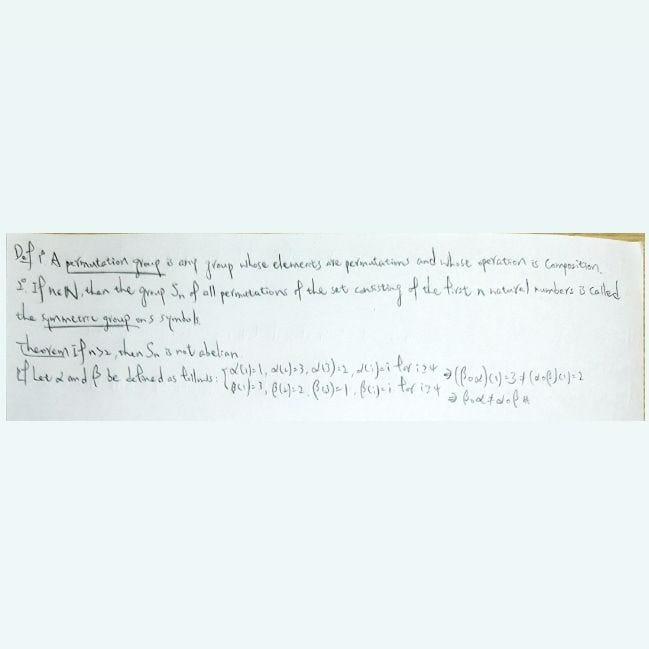 Def 1° A permutation group is any group whose elements are permutations and whose operation is composition.
2° If n∈N, then the group Sn of all permutations of the set consisting of the first n natural numbers is called
the symmetric group on s symbols.
Theorem If n>2, then Sn is not abelian.
pf Let α and β be defined as follows: { α(1)=1, α(2)=3, α(3)=2, α(i)=i for i≥4 ⇒ (β∘α)(1)=3 ≠ (α∘β)(1)=2
β(1)=3, β(2)=2, β(3)=1, β(i)=i for i≥4 ⇒ β∘α≠α∘β #